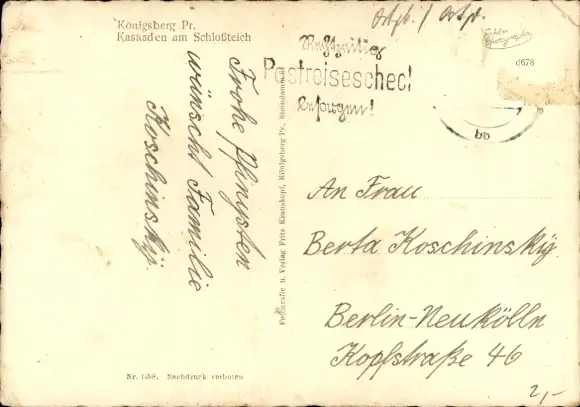 Königsberg Pr.
Kaskaden am Schloßteich
Ostpr. / Ostpr.
Echte Photographie
d678
Rechtzeitig
Postreisescheck
besorgen!
Frohe Pfingsten
wünscht Familie
Koschinsky.
Photografie u. Verlag Fritz Krauskopf, Königsberg Pr., Steindamm
An Frau
Berta Koschinsky.
Berlin-Neukölln
Kopfstraße 46
Nr. 1558. Nachdruck verboten
2,-